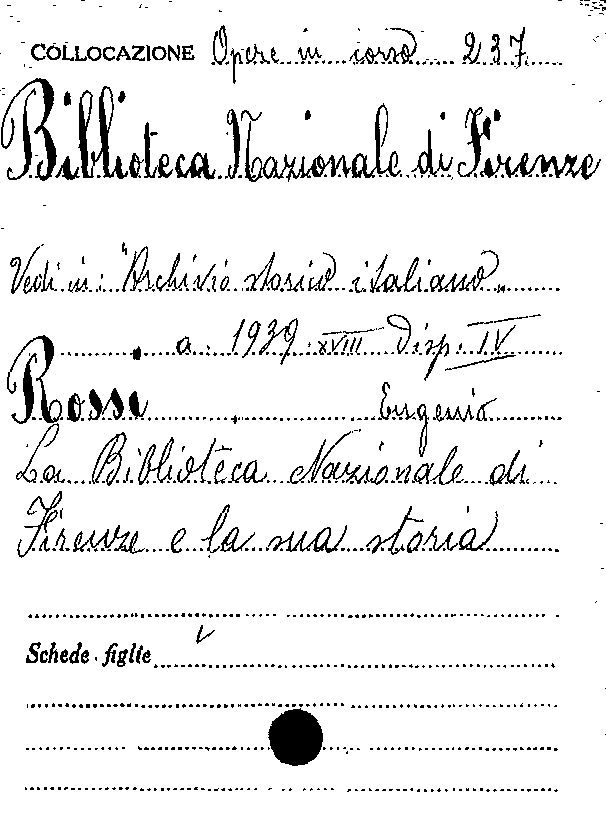 COLLOCAZIONE Opere in corso 237
Biblioteca Nazionale di Firenze
Vedi in: "Archivio storico italiano"
a. 1939 XVIII Disp. IV
Rossi Eugenio
La Biblioteca Nazionale di
Firenze e la sua storia
Schede figlie